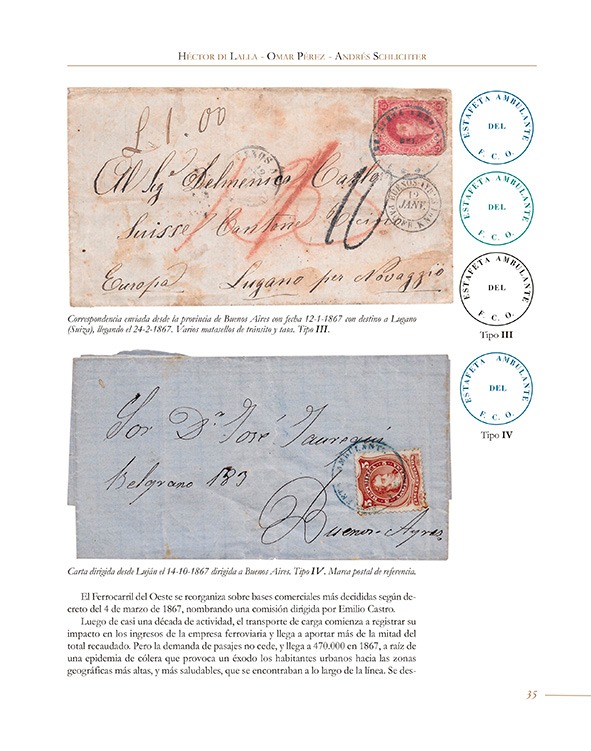 HÉCTOR DI LALLA - OMAR PÉREZ - ANDRÉS SCHLICHTER
£ 1.00
Al Sigr Delmenico Carlo
Suisse Cantone Ticino
Europa Lugano per Novaggio
BUENOS AYRES
12
JANV.
ESTAFETA AMBULANTE
DEL
F. C. O.
ESTAFETA AMBULANTE
DEL
F. C. O.
ESTAFETA AMBULANTE
DEL
F. C. O.
Tipo III
Correspondencia enviada desde la provincia de Buenos Aires con fecha 12-1-1867 con destino a Lugano
(Suiza), llegando el 24-2-1867. Varios matasellos de tránsito y tasa. Tipo III.
ESTAFETA AMBULANTE
DEL
F. C. O.
Tipo IV
Sor Dn José Jauregui
Belgrano 183
Buenos-Ayres
AMBULANT
5
5
Carta dirigida desde Luján el 14-10-1867 dirigida a Buenos Aires. Tipo IV. Marca postal de referencia.
El Ferrocarril del Oeste se reorganiza sobre bases comerciales más decididas según de-
creto del 4 de marzo de 1867, nombrando una comisión dirigida por Emilio Castro.
Luego de casi una década de actividad, el transporte de carga comienza a registrar su
impacto en los ingresos de la empresa ferroviaria y llega a aportar más de la mitad del
total recaudado. Pero la demanda de pasajes no cede, y llega a 470.000 en 1867, a raíz de
una epidemia de cólera que provoca un éxodo los habitantes urbanos hacia las zonas
geográficas más altas, y más saludables, que se encontraban a lo largo de la línea. Se des-
35